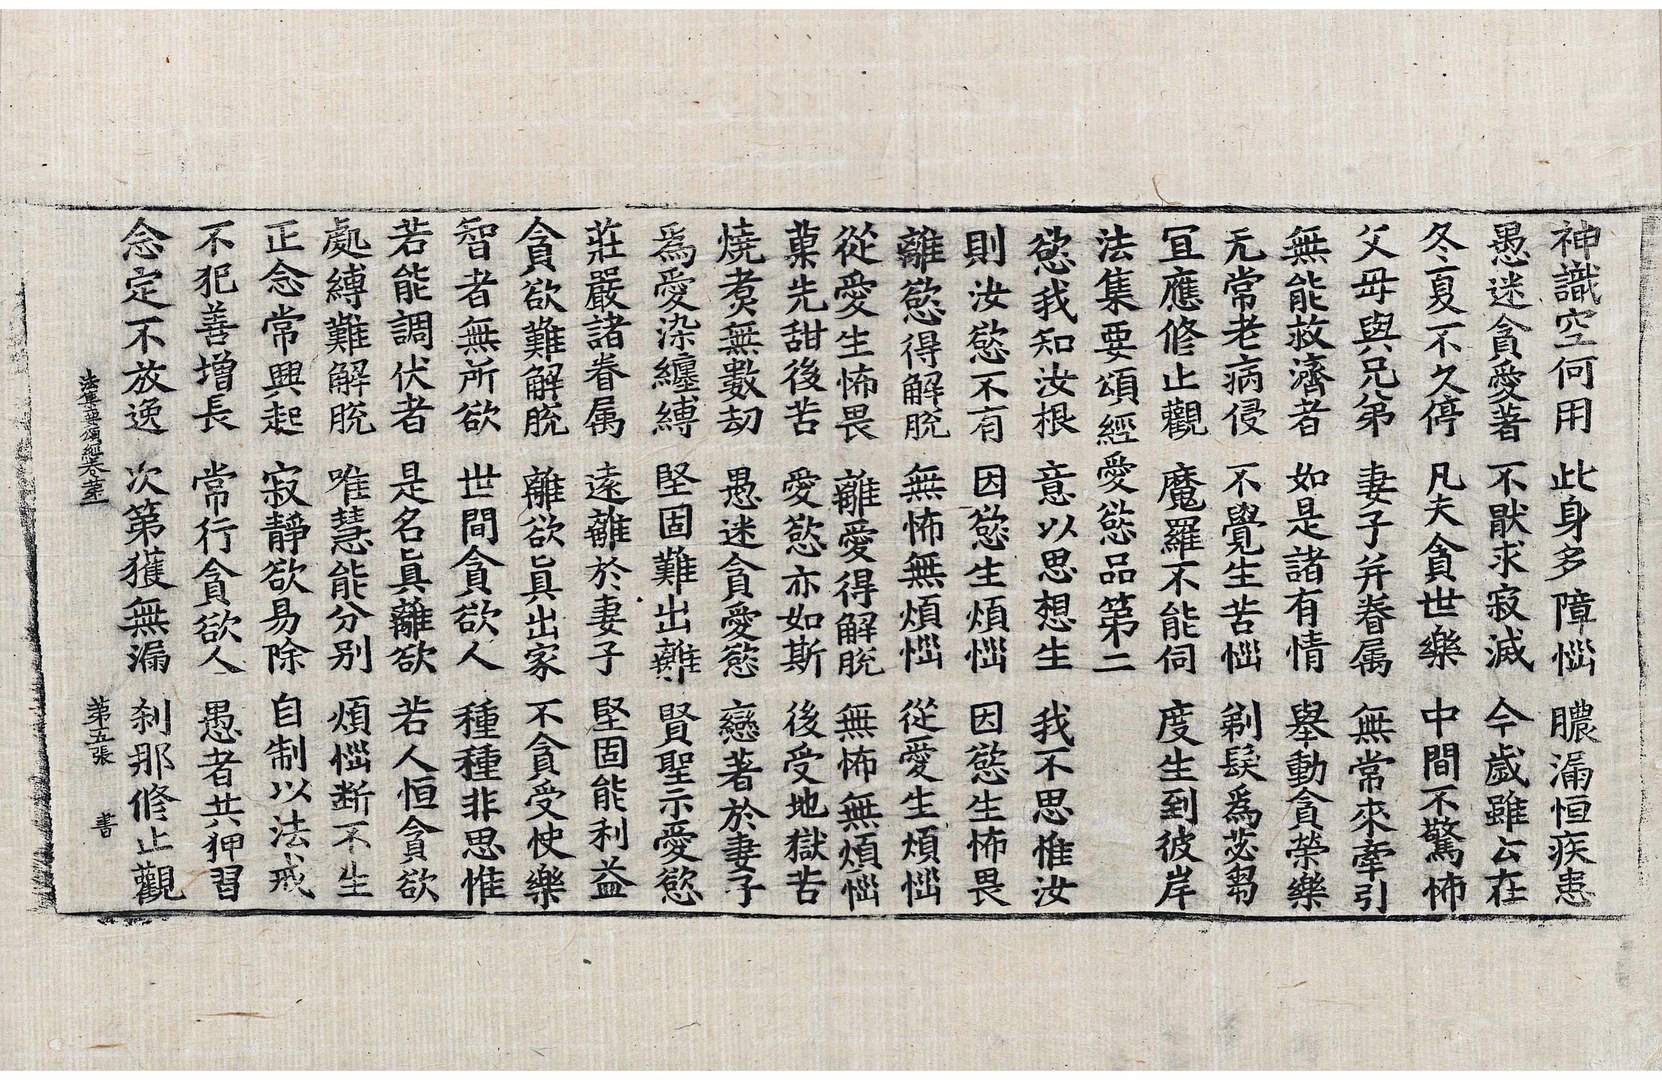 神識空何用　此身多障惱　膿漏恒疾患
愚迷貪愛著　不猒求寂滅　今歲雖云在
冬夏不久停　凡夫貪世樂　中間不驚怖
父母與兄弟　妻子并眷属　無常來牽引
無能救濟者　如是諸有情　舉動貪榮樂
无常老病侵　不覺生苦惱　剃髮爲苾芻
冝應修止觀　魔羅不能伺　度生到彼岸
法集要頌經愛慾品第二
慾我知汝根　意以思想生　我不思惟汝
則汝慾不有　因慾生煩惱　因慾生怖畏
離慾得解脫　無怖無煩惱　從愛生煩惱
從愛生怖畏　離愛得解脫　無怖無煩惱
菓先甜後苦　愛慾亦如斯　後受地獄苦
燒煑無數劫　愚迷貪愛慾　戀著於妻子
爲愛染纏縛　堅固難出離　賢聖示愛慾
莊嚴諸眷属　遠離於妻子　堅固能利益
貪欲難解脫　離欲真出家　不貪受快樂
智者無所欲　世間貪欲人　種種非思惟
若能調伏者　是名真離欲　若人恒貪欲
處縛難解脫　唯慧能分別　煩惱断不生
正念常興起　寂靜欲易除　自制以法戒
不犯善增長　常行貪欲人　愚者共狎習
念定不放逸　次第獲無漏　刹那修止觀
法集要頌經卷第一　第五張　書